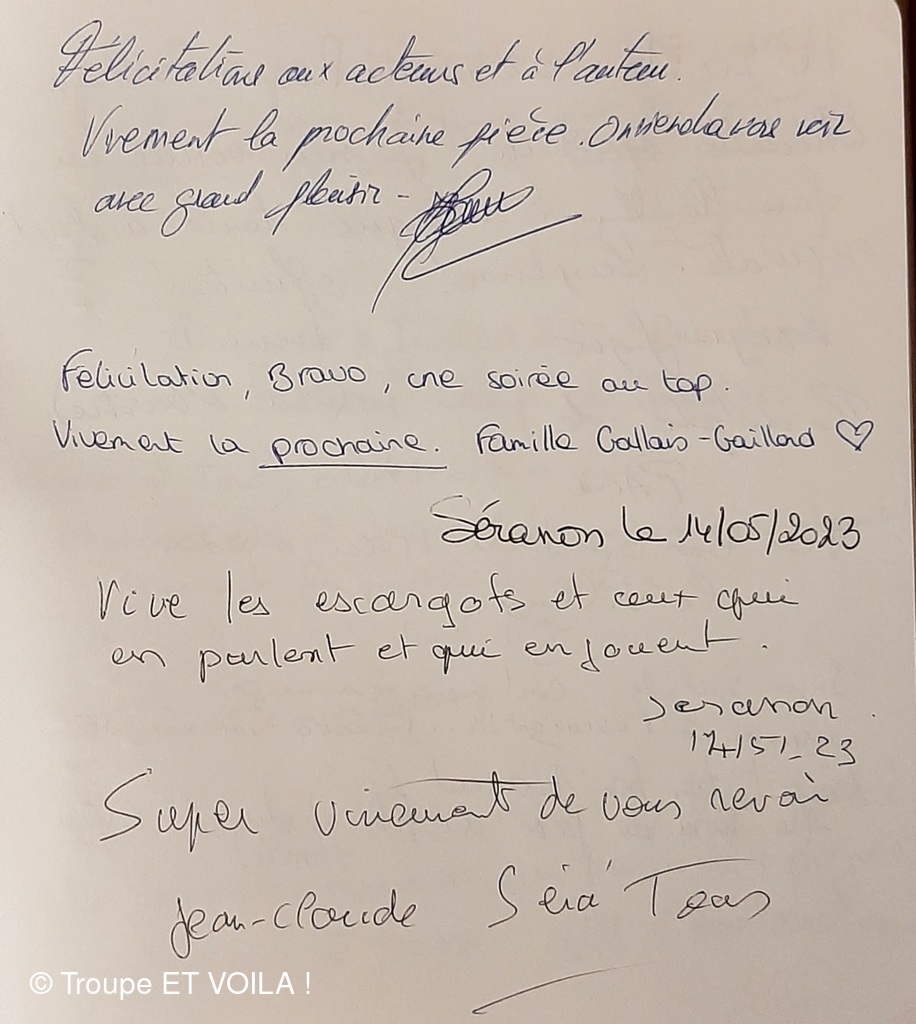 Félicitations aux acteurs et à l'auteur.
Vivement la prochaine pièce. On viendra vous voir
avec grand plaisir -
Félicitation, Bravo, une soirée au top.
Vivement la prochaine. Famille Gallais-Gaillard ♡
Séranon le 14/05/2023
Vive les escargots et ceux qui
en parlent et qui en jouent.
Seranon.
14/5/_23
Super vivement de vous revoir
Jean-Claude
© Troupe ET VOILA !